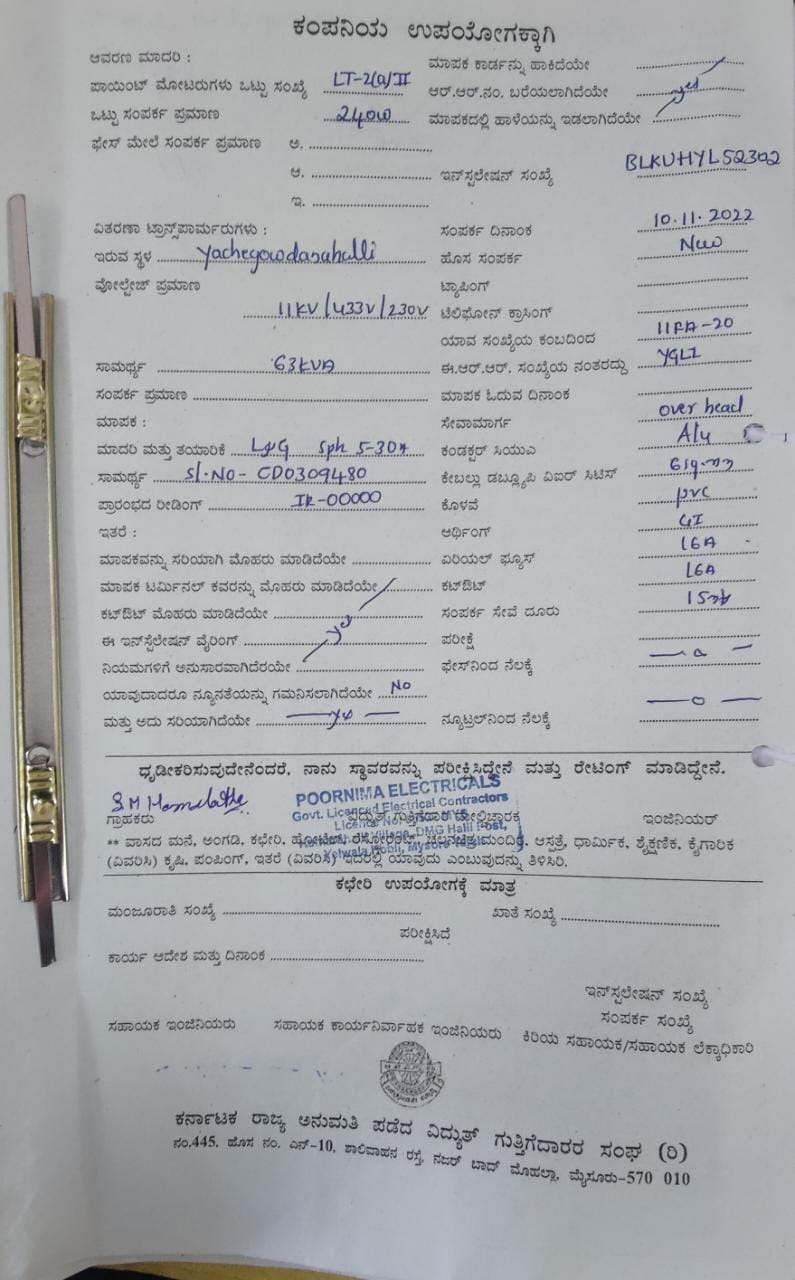 ಕಂಪನಿಯ ಉಪಯೋಗಕ್ಕಾಗಿ
ಆವರಣ ಮಾದರಿ : ಮಾಪಕ ಕಾರ್ಡನ್ನು ಹಾಕಿದೆಯೇ
ಪಾಯಿಂಟ್ ಮೋಟರುಗಳು ಒಟ್ಟು ಸಂಖ್ಯೆ LT-2(a)II ಆರ್.ಆರ್.ನಂ. ಬರೆಯಲಾಗಿದೆಯೇ yes
ಒಟ್ಟು ಸಂಪರ್ಕ ಪ್ರಮಾಣ 240W ಮಾಪಕದಲ್ಲಿ ಹಾಳೆಯನ್ನು ಇಡಲಾಗಿದೆಯೇ
ಫೇಸ್ ಮೇಲೆ ಸಂಪರ್ಕ ಪ್ರಮಾಣ ಅ.
ಆ. ಇನ್‌ಸ್ಟಲೇಷನ್ ಸಂಖ್ಯೆ BLKUHYL52302
ಇ.
ವಿತರಣಾ ಟ್ರಾನ್ಸ್‌ಪಾರ್ಮರುಗಳು : ಸಂಪರ್ಕ ದಿನಾಂಕ 10.11.2022
ಇರುವ ಸ್ಥಳ Yachegowdanahalli ಹೊಸ ಸಂಪರ್ಕ New
ವೋಲ್ಟೇಜ್ ಪ್ರಮಾಣ ಟ್ಯಾಪಿಂಗ್
11KV/433V/230V ಟೆಲಿಫೋನ್ ಕ್ರಾಸಿಂಗ್
ಯಾವ ಸಂಖ್ಯೆಯ ಕಂಬದಿಂದ
ಸಾಮರ್ಥ್ಯ 63KVA ಈ.ಆರ್.ಆರ್. ಸಂಖ್ಯೆಯ ನಂತರದ್ದು
ಸಂಪರ್ಕ ಪ್ರಮಾಣ ಮಾಪಕ ಓದುವ ದಿನಾಂಕ
ಮಾಪಕ : ಸೇವಾಮಾರ್ಗ over head
ಮಾದರಿ ಮತ್ತು ತಯಾರಿಕೆ L&G Sph 5-30A ಕಂಡಕ್ಟರ್ ಸಿಯುಎ Alu
ಸಾಮರ್ಥ್ಯ Sl.No- CD0309480 ಕೇಬಲ್ಲು ಡಬ್ಲ್ಯೂಪಿ ವಿಐರ್ ಸಿಟಿಸ್
ಪ್ರಾರಂಭದ ರೀಡಿಂಗ್ IR-00000 ಕೊಳವೆ pvc
ಇತರೆ : ಆರ್ಥಿಂಗ್ GI
ಮಾಪಕವನ್ನು ಸರಿಯಾಗಿ ಮೊಹರು ಮಾಡಿದೆಯೇ ಏರಿಯಲ್ ಫ್ಯೂಸ್ 16A
ಮಾಪಕ ಟರ್ಮಿನಲ್ ಕವರನ್ನು ಮೊಹರು ಮಾಡಿದೆಯೇ ಕಟ್‌ಔಟ್ 16A
ಕಟ್‌ಔಟ್ ಮೊಹರು ಮಾಡಿದೆಯೇ ಸಂಪರ್ಕ ಸೇವೆ ದೂರು
ಈ ಇನ್‌ಸ್ಟೆಲೇಷನ್ ವೈರಿಂಗ್ ಪರೀಕ್ಷೆ
ನಿಯಮಗಳಿಗೆ ಅನುಸಾರವಾಗಿದೆರಯೇ ಫೇಸ್‌ನಿಂದ ನೆಲಕ್ಕೆ
ಯಾವುದಾದರೂ ನ್ಯೂನತೆಯನ್ನು ಗಮನಿಸಲಾಗಿದೆಯೇ No
ಮತ್ತು ಅದು ಸರಿಯಾಗಿದೆಯೇ ನ್ಯೂಟ್ರಲ್‌ನಿಂದ ನೆಲಕ್ಕೆ
ಧೃಡೀಕರಿಸುವುದೇನೆಂದರೆ. ನಾನು ಸ್ಥಾವರವನ್ನು ಪರೀಕ್ಷಿಸಿದ್ದೇನೆ ಮತ್ತು ರೇಟಿಂಗ್ ಮಾಡಿದ್ದೇನೆ.
POORNIMA ELECTRICALS
Govt. Licenced Electrical Contractors
ಗ್ರಾಹಕರು ವಿದ್ಯುತ್ ಗುತ್ತಿಗೆದಾರ ಮೇಲ್ವಿಚಾರಕ ಇಂಜಿನಿಯರ್
** ವಾಸದ ಮನೆ, ಅಂಗಡಿ, ಕಛೇರಿ, ಹೋಟೆಲ್, ರೆಸ್ಟೋರೆಂಟ್, ಚಲನಚಿತ್ರ ಮಂದಿರ, ಆಸ್ಪತ್ರೆ, ಧಾರ್ಮಿಕ, ಶೈಕ್ಷಣಿಕ, ಕೈಗಾರಿಕ
(ವಿವರಿಸಿ) ಕೃಷಿ, ಪಂಪಿಂಗ್, ಇತರೆ (ವಿವರಿಸಿ) ಇದರಲ್ಲಿ ಯಾವುದು ಎಂಬುವುದನ್ನು ತಿಳಿಸಿರಿ.
ಕಛೇರಿ ಉಪಯೋಗಕ್ಕೆ ಮಾತ್ರ
ಮಂಜೂರಾತಿ ಸಂಖ್ಯೆ ಖಾತೆ ಸಂಖ್ಯೆ
ಪರೀಕ್ಷಿಸಿದೆ
ಕಾರ್ಯ ಆದೇಶ ಮತ್ತು ದಿನಾಂಕ
ಇನ್‌ಸ್ಟಲೇಷನ್ ಸಂಖ್ಯೆ
ಸಂಪರ್ಕ ಸಂಖ್ಯೆ
ಸಹಾಯಕ ಇಂಜಿನಿಯರು ಸಹಾಯಕ ಕಾರ್ಯನಿರ್ವಾಹಕ ಇಂಜಿನಿಯರು ಕಿರಿಯ ಸಹಾಯಕ/ಸಹಾಯಕ ಲೆಕ್ಕಾಧಿಕಾರಿ
ಕರ್ನಾಟಕ ರಾಜ್ಯ ಅನುಮತಿ ಪಡೆದ ವಿದ್ಯುತ್ ಗುತ್ತಿಗೆದಾರರ ಸಂಘ (ರಿ)
ನಂ.445, ಹೊಸ ನಂ. ಎನ್-10, ಶಾಲಿವಾಹನ ರಸ್ತೆ, ನಜರ್ ಬಾದ್ ಮೊಹಲ್ಲಾ, ಮೈಸೂರು-570 010